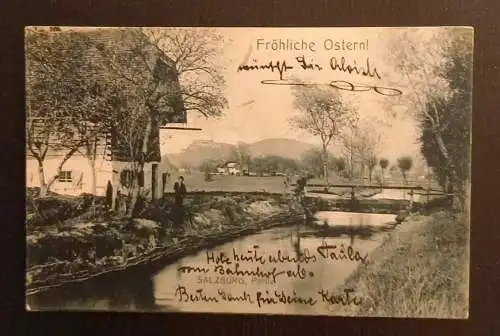 Fröhliche Ostern!
wünscht Dir Aloisch
Hole heute abends Paula
vom Bahnhof ab.
SALZBURG, Partie
Besten Dank für Deine Karte